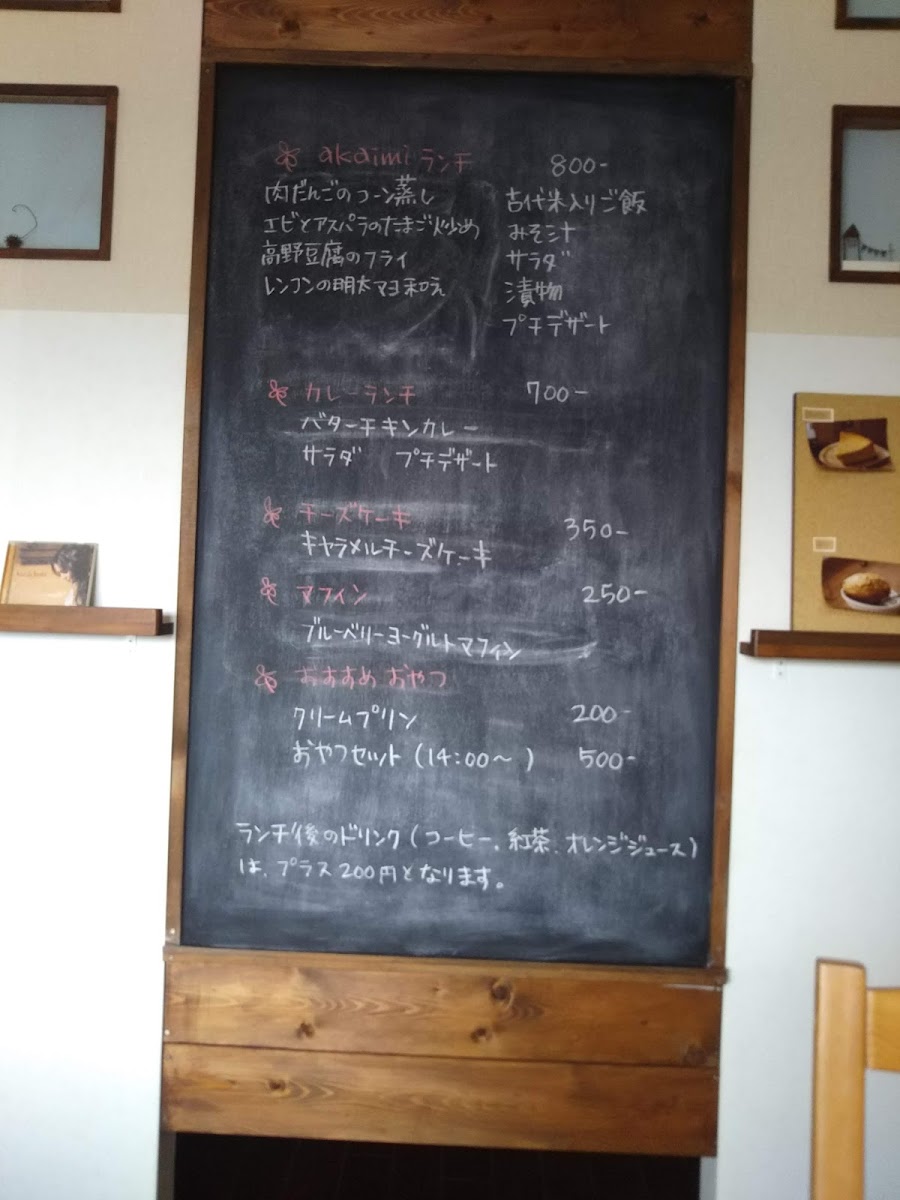 akaimi ランチ 800-
肉だんごのコーン蒸し
エビとアスパラのたまご炒め
高野豆腐のフライ
レンコンの明太マヨ和え
古代米入りご飯
みそ汁
サラダ
漬物
プチデザート
カレーランチ 700-
バターチキンカレー
サラダ プチデザート
チーズケーキ 350-
キャラメルチーズケーキ
マフィン 250-
ブルーベリーヨーグルトマフィン
おすすめ おやつ
クリームプリン 200-
おやつセット (14:00~ ) 500-
ランチ後のドリンク (コーヒー、紅茶、オレンジジュース)
は、プラス200円となります。